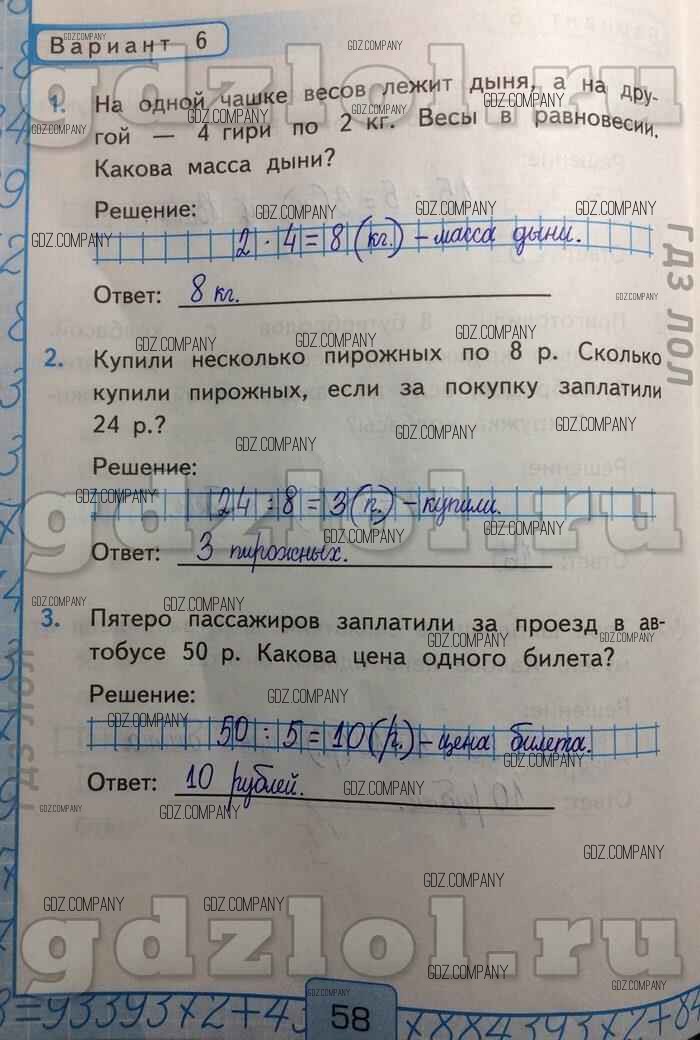 Вариант 6
1. На одной чашке весов лежит дыня, а на дру-
гой — 4 гири по 2 кг. Весы в равновесии.
Какова масса дыни?
Решение:
2 · 4 = 8 (кг.) – масса дыни.
Ответ: 8 кг.
2. Купили несколько пирожных по 8 р. Сколько
купили пирожных, если за покупку заплатили
24 р.?
Решение:
24 : 8 = 3 (п.) – купили.
Ответ: 3 пирожных.
3. Пятеро пассажиров заплатили за проезд в ав-
тобусе 50 р. Какова цена одного билета?
Решение:
50 : 5 = 10 (р.) – цена билета.
Ответ: 10 рублей.
58
gdzlol.ru
gdzlol.ru
gdzlol.ru
ГДЗ ЛОЛ
ГДЗ ЛОЛ
GDZ.COMPANY